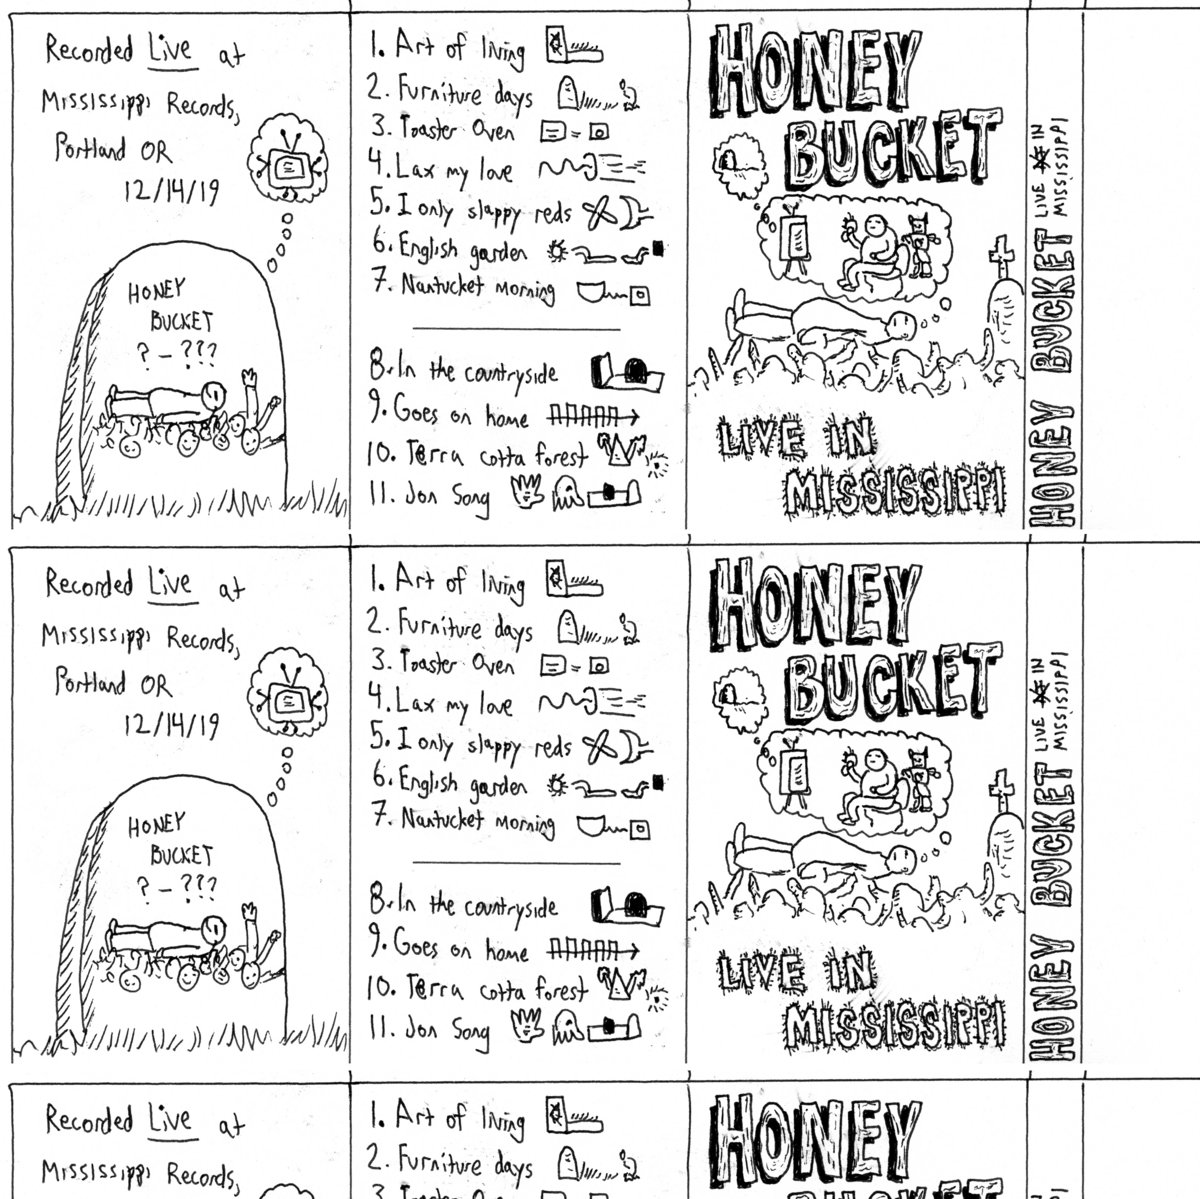 Recorded Live at
Mississippi Records,
Portland OR
12/14/19
HONEY
BUCKET
? - ???
1. Art of living
2. Furniture days
3. Toaster Oven
4. Lax my love
5. I only slappy reds
6. English garden
7. Nantucket morning
8. In the countryside
9. Goes on home
10. Terra cotta forest
11. Jon Song
HONEY
BUCKET
LIVE IN
MISSISSIPPI
HONEY BUCKET LIVE IN
MISSISSIPPI
Recorded Live at
Mississippi Records,
Portland OR
12/14/19
HONEY
BUCKET
? - ???
1. Art of living
2. Furniture days
3. Toaster Oven
4. Lax my love
5. I only slappy reds
6. English garden
7. Nantucket morning
8. In the countryside
9. Goes on home
10. Terra cotta forest
11. Jon Song
HONEY
BUCKET
LIVE IN
MISSISSIPPI
HONEY BUCKET LIVE IN
MISSISSIPPI
Recorded Live at
Mississippi Records,
1. Art of living
2. Furniture days
HONEY